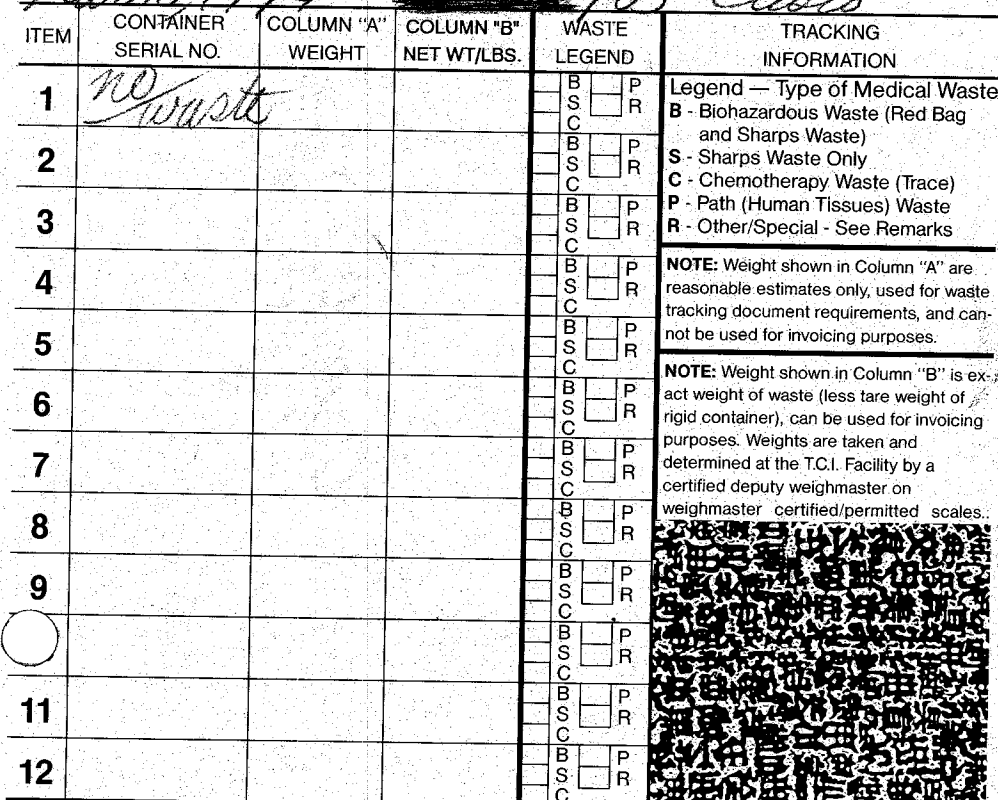 ITEM
CONTAINER
SERIAL NO.
COLUMN "A"
WEIGHT
COLUMN "B"
NET WT/LBS.
WASTE
LEGEND
TRACKING
INFORMATION
1
no
waste
B P
S R
C
2
B P
S R
C
3
B P
S R
C
4
B P
S R
C
5
B P
S R
C
6
B P
S R
C
7
B P
S R
C
8
B P
S R
C
9
B P
S R
C
B P
S R
C
11
B P
S R
C
12
B P
S R
C
Legend — Type of Medical Waste
B - Biohazardous Waste (Red Bag
and Sharps Waste)
S - Sharps Waste Only
C - Chemotherapy Waste (Trace)
P - Path (Human Tissues) Waste
R - Other/Special - See Remarks
NOTE: Weight shown in Column "A" are
reasonable estimates only, used for waste
tracking document requirements, and can-
not be used for invoicing purposes.
NOTE: Weight shown in Column "B" is ex-
act weight of waste (less tare weight of
rigid container), can be used for invoicing
purposes. Weights are taken and
determined at the T.C.I. Facility by a
certified deputy weighmaster on
weighmaster certified/permitted scales.